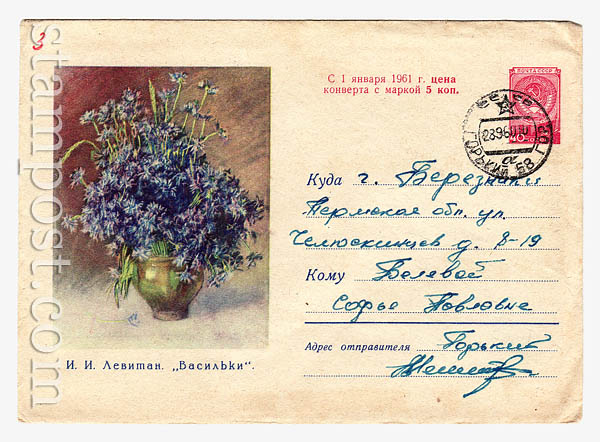 3
stampost.com
С 1 января 1961 г. цена
конверта с маркой 5 коп.
ПОЧТА СССР
ГОРЬКИЙ 58
Куда г. Березники
Пермская обл. ул.
Челюскинцев д. 8-19
Кому Белявой
Софье Павловне
Адрес отправителя Горький
И. И. Левитан. „Васильки“.